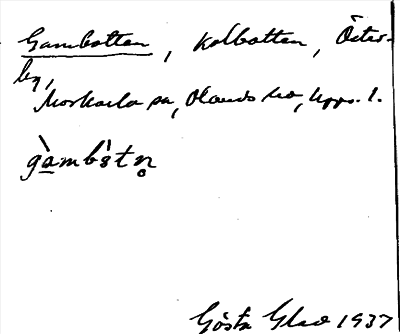 Gambotten, Kolbotten, Öster-
by,
Morkarla sn, Olands hd, Upps. l.
gàmbòtn̥
Gösta 1937